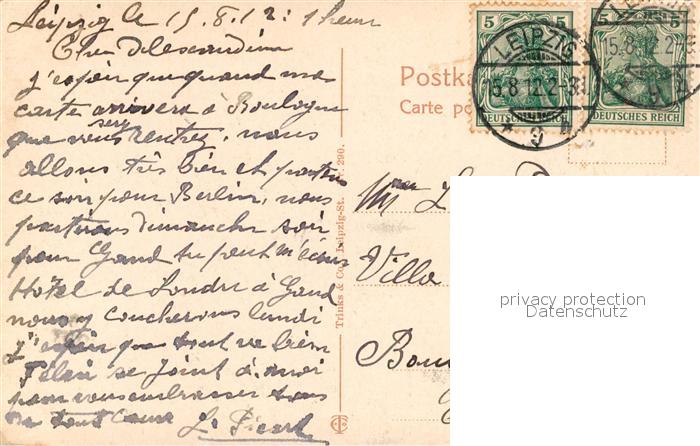 Leipzig le 15.8.12. 1 heure
Chere Alexandrine
j'espère que quand ma
carte arrivera à Boulogne
que vous serez rentrez, nous
allons très bien et partons
ce soir pour Berlin, nous
partirons dimanche soir
pour Gand tu peut m'écrire
Hôtel de Londre à Gand
nous y coucherons lundi
J'espère que tout va bien
Félix se joint à moi
pour vous embrasser tous
de tout cœur L. Picard
Trinks & Co., Leipzig-St. Nr. 290.
Postka
Carte po
5 5
DEUTSCHES REICH
LEIPZIG
15.8.12.2-3
9
5
DEUTSCHES REICH
LEIPZIG
15.8.12.2-3
Villa
privacy protection
Datenschutz